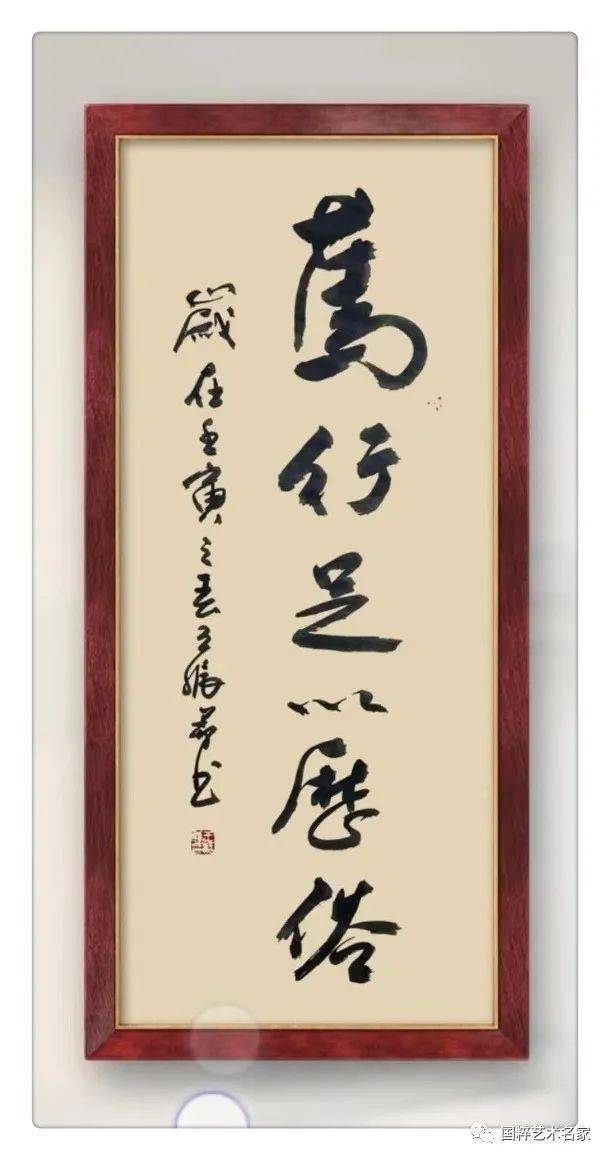 篤行足以歷俗
歲在壬寅之春王书
国粹艺术名家